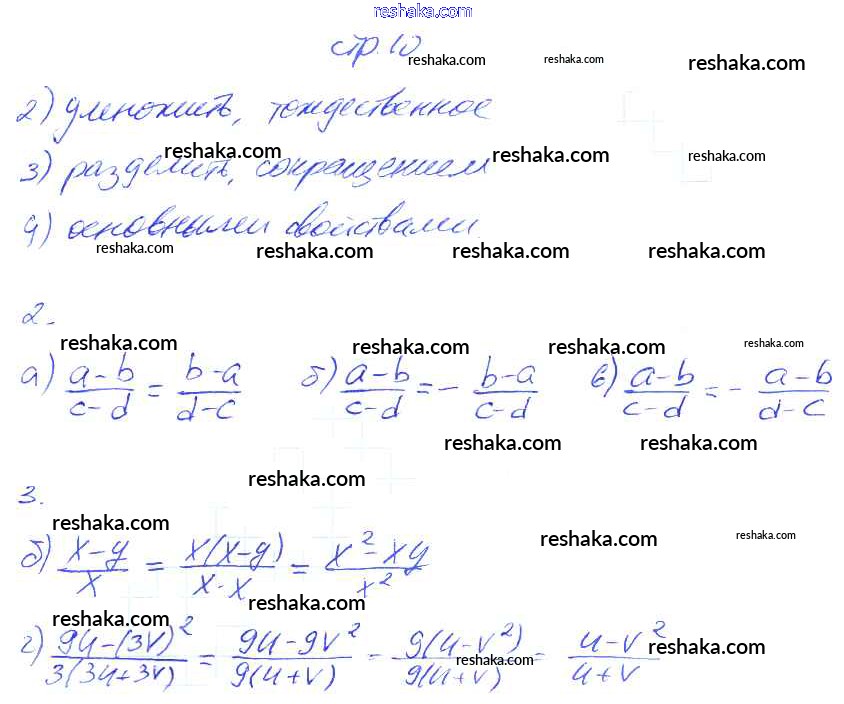 reshaka.com
стр. 10
reshaka.com reshaka.com reshaka.com
2) умножить, тождественное
reshaka.com reshaka.com reshaka.com
3) разделить, сокращением
4) основными свойствами.
reshaka.com reshaka.com reshaka.com reshaka.com
2.
reshaka.com reshaka.com reshaka.com reshaka.com
а) (a-b)/(c-d) = (b-a)/(d-c) б) (a-b)/(c-d) = - (b-a)/(c-d) в) (a-b)/(c-d) = - (a-b)/(d-c)
reshaka.com reshaka.com
reshaka.com
3.
reshaka.com reshaka.com reshaka.com
б) (x-y)/x = x(x-y)/(x·x) = (x²-xy)/x²
reshaka.com reshaka.com
г) (9u-(3v)²)/(3(3u+3v)) = (9u-9v²)/(9(u+v)) = 9(u-v²)/(9(u+v)) = (u-v²)/(u+v)
reshaka.com reshaka.com